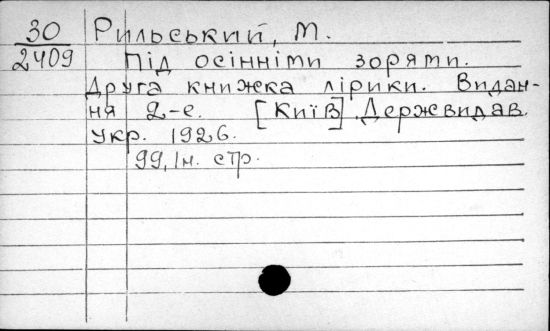 30 Рильський, М.
2409 Під осінніми зорями.
Друга книжка лірики. Видан-
ня 2-е. [Київ] Держвидав.
Укр. 1926.
99, 1н. стр.